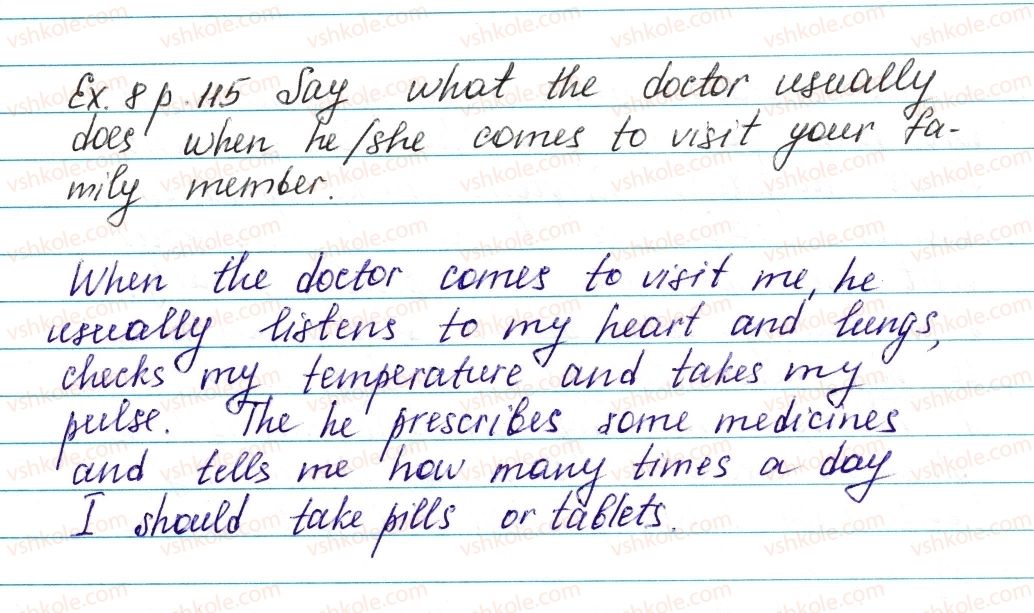 Ex. 8 p. 115 Say what the doctor usually
does when he/she comes to visit your fa-
mily member.
When the doctor comes to visit me, he
usually listens to my heart and lungs,
checks my temperature and takes my
pulse. The he prescribes some medicines
and tells me how many times a day
I should take pills or tablets.
vshkole.com